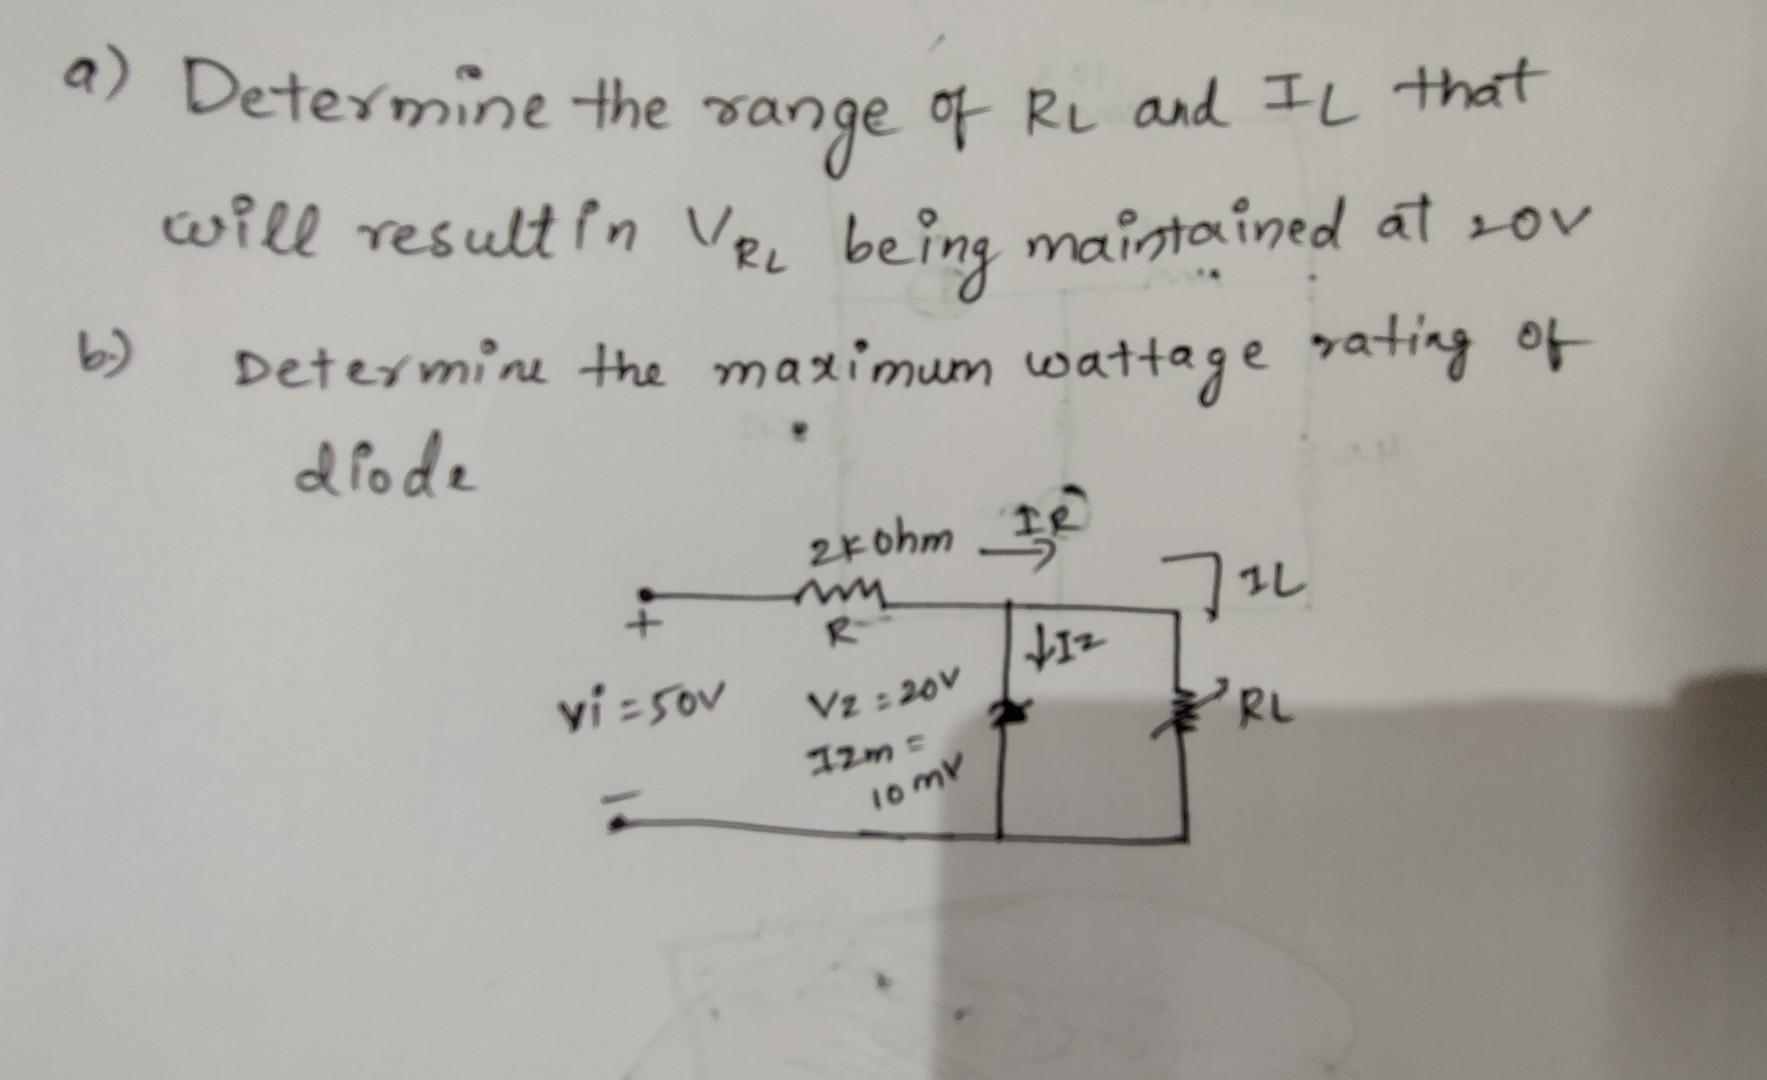 a) Determine the range of RL and IL that
will result in VRL being maintained at 20V
b) Determine the maximum wattage rating of
diode
2k ohm IR
IL
+ R ↓Iz
Vi = 50V Vz = 20V RL
Izm =
10 mV
-